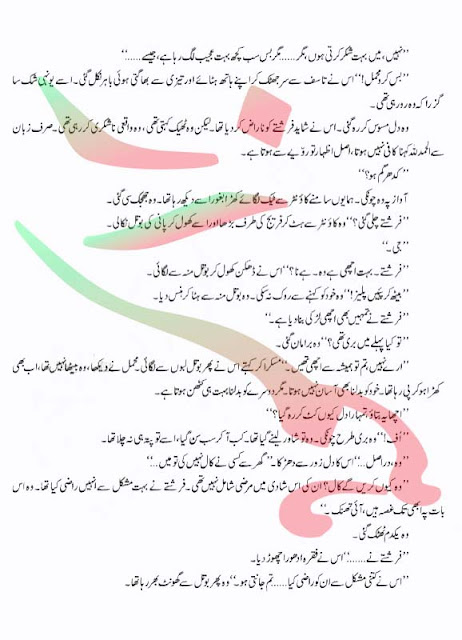 ”نہیں، میں بہت شکر کرتی ہوں، مگر...... مگر بس سب کچھ بہت عجیب لگ رہا ہے، جیسے......“
”بس کرو محمل!“ اس نے تاسف سے سر جھٹک کر اپنے ہاتھ ہٹائے اور تیزی سے بھاگتی ہوئی باہر نکل گئی۔ اسے یونہی شک سا
گزرا کہ وہ رو رہی تھی۔
وہ دل مسوس کر رہ گئی۔ اس نے شاید فرشتے کو ناراض کر دیا تھا۔ لیکن وہ ٹھیک کہتی تھی، وہ واقعی ناشکری کر رہی تھی۔ صرف زبان
سے الحمد للہ کہنا کافی نہیں ہوتا، اصل اظہار تو رویے سے ہوتا ہے۔
”کدھر گم ہو؟“
آواز پہ وہ چونکی۔ ہمایوں سامنے کاؤنٹر سے ٹیک لگائے کھڑا بغور اسے دیکھ رہا تھا۔ وہ جھجک سی گئی۔
”فرشتے چلی گئی؟“ وہ کاؤنٹر سے ہٹ کر فریج کی طرف بڑھا اور اسے کھول کر پانی کی بوتل نکالی۔
”جی۔“
”فرشتے۔ بہت اچھی ہے وہ۔ ہے نا؟“ اس نے ڈھکن کھول کر بوتل منہ سے لگائی۔
”بیٹھ کر پئیں پلیز!“ وہ خود کو کہنے سے روک نہ سکی۔ وہ بوتل منہ سے ہٹا کر ہنس دیا۔
”فرشتے نے تمہیں بھی اچھی لڑکی بنا دیا ہے۔“
”تو کیا پہلے میں بری تھی؟“ وہ برا مان گئی۔
”ارے نہیں، تم تو ہمیشہ سے اچھی تھیں۔“ مسکرا کر کہتے اس نے پھر بوتل لبوں سے لگائی۔ محمل نے دیکھا، وہ بیٹھا نہیں تھا، اب بھی
کھڑا ہو کر پی رہا تھا۔ خود کو بدلنا بھی آسان نہیں ہوتا۔ مگر دوسرے کو بدلنا بہت ہی کٹھن ہوتا ہے۔
”اچھا یہ بتاؤ، تمہارا دل کیوں کٹ کر رہ گیا؟“
”اُف!“ وہ بری طرح چونکی۔ وہ تو شاور لینے گیا تھا۔ کب آ کر سب سن گیا، اسے تو پتہ ہی نہ چلا تھا۔
”وہ، دراصل...“ اس کا دل زور سے دھڑکا۔ ”گھر سے کسی نے کال نہیں کی تو میں...“
”وہ کیوں کریں گے کال؟ ان کی اس شادی میں مرضی شامل نہیں تھی۔ فرشتے نے بہت مشکل سے انہیں راضی کیا تھا۔ وہ اس
بات پہ ابھی تک غصہ ہیں، آئی تھنک۔“
وہ یکدم ٹھٹک گئی۔
”فرشتے نے......“ اس نے فقرہ ادھورا چھوڑ دیا۔
”اس نے کتنی مشکل سے ان کو راضی کیا...... تم جانتی ہو۔“ وہ پھر بوتل سے گھونٹ بھر رہا تھا۔